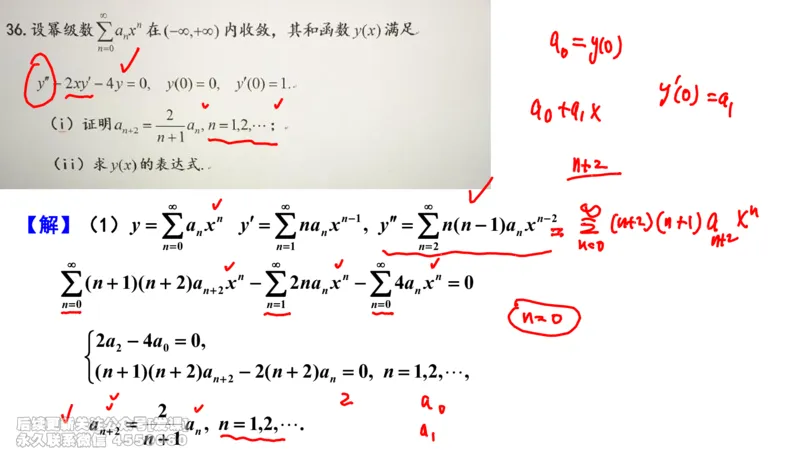 36.设幂级数 $\sum_{n=0}^{\infty} a_n x^n$ 在 (−∞,+∞) 内收敛，其和函数 y(x) 满足
y″−2xy′−4y=0, y(0)=0, y′(0)=1.
(i) 证明 $a_{n+2}=\frac{2}{n+1}a_n$, n=1,2,⋯;
(ii) 求 y(x) 的表达式.
a₀=y(0)
y′(0)=a₁
a₀+a₁x
n+2
【解】(1) $y=\sum_{n=0}^{\infty} a_n x^n$ $y'=\sum_{n=1}^{\infty} na_n x^{n-1}$, $y''=\sum_{n=2}^{\infty} n(n-1)a_n x^{n-2}$ $=\sum_{n=0}^{\infty}(n+2)(n+1)a_{n+2}x^n$
$\sum_{n=0}^{\infty}(n+1)(n+2)a_{n+2}x^n-\sum_{n=1}^{\infty}2na_n x^n-\sum_{n=0}^{\infty}4a_n x^n=0$
n=0
2a₂−4a₀=0,
(n+1)(n+2)aₙ₊₂−2(n+2)aₙ=0, n=1,2,⋯,
2 a₀
$a_{n+2}=\frac{2}{n+1}a_n$, n=1,2,⋯.
a₁